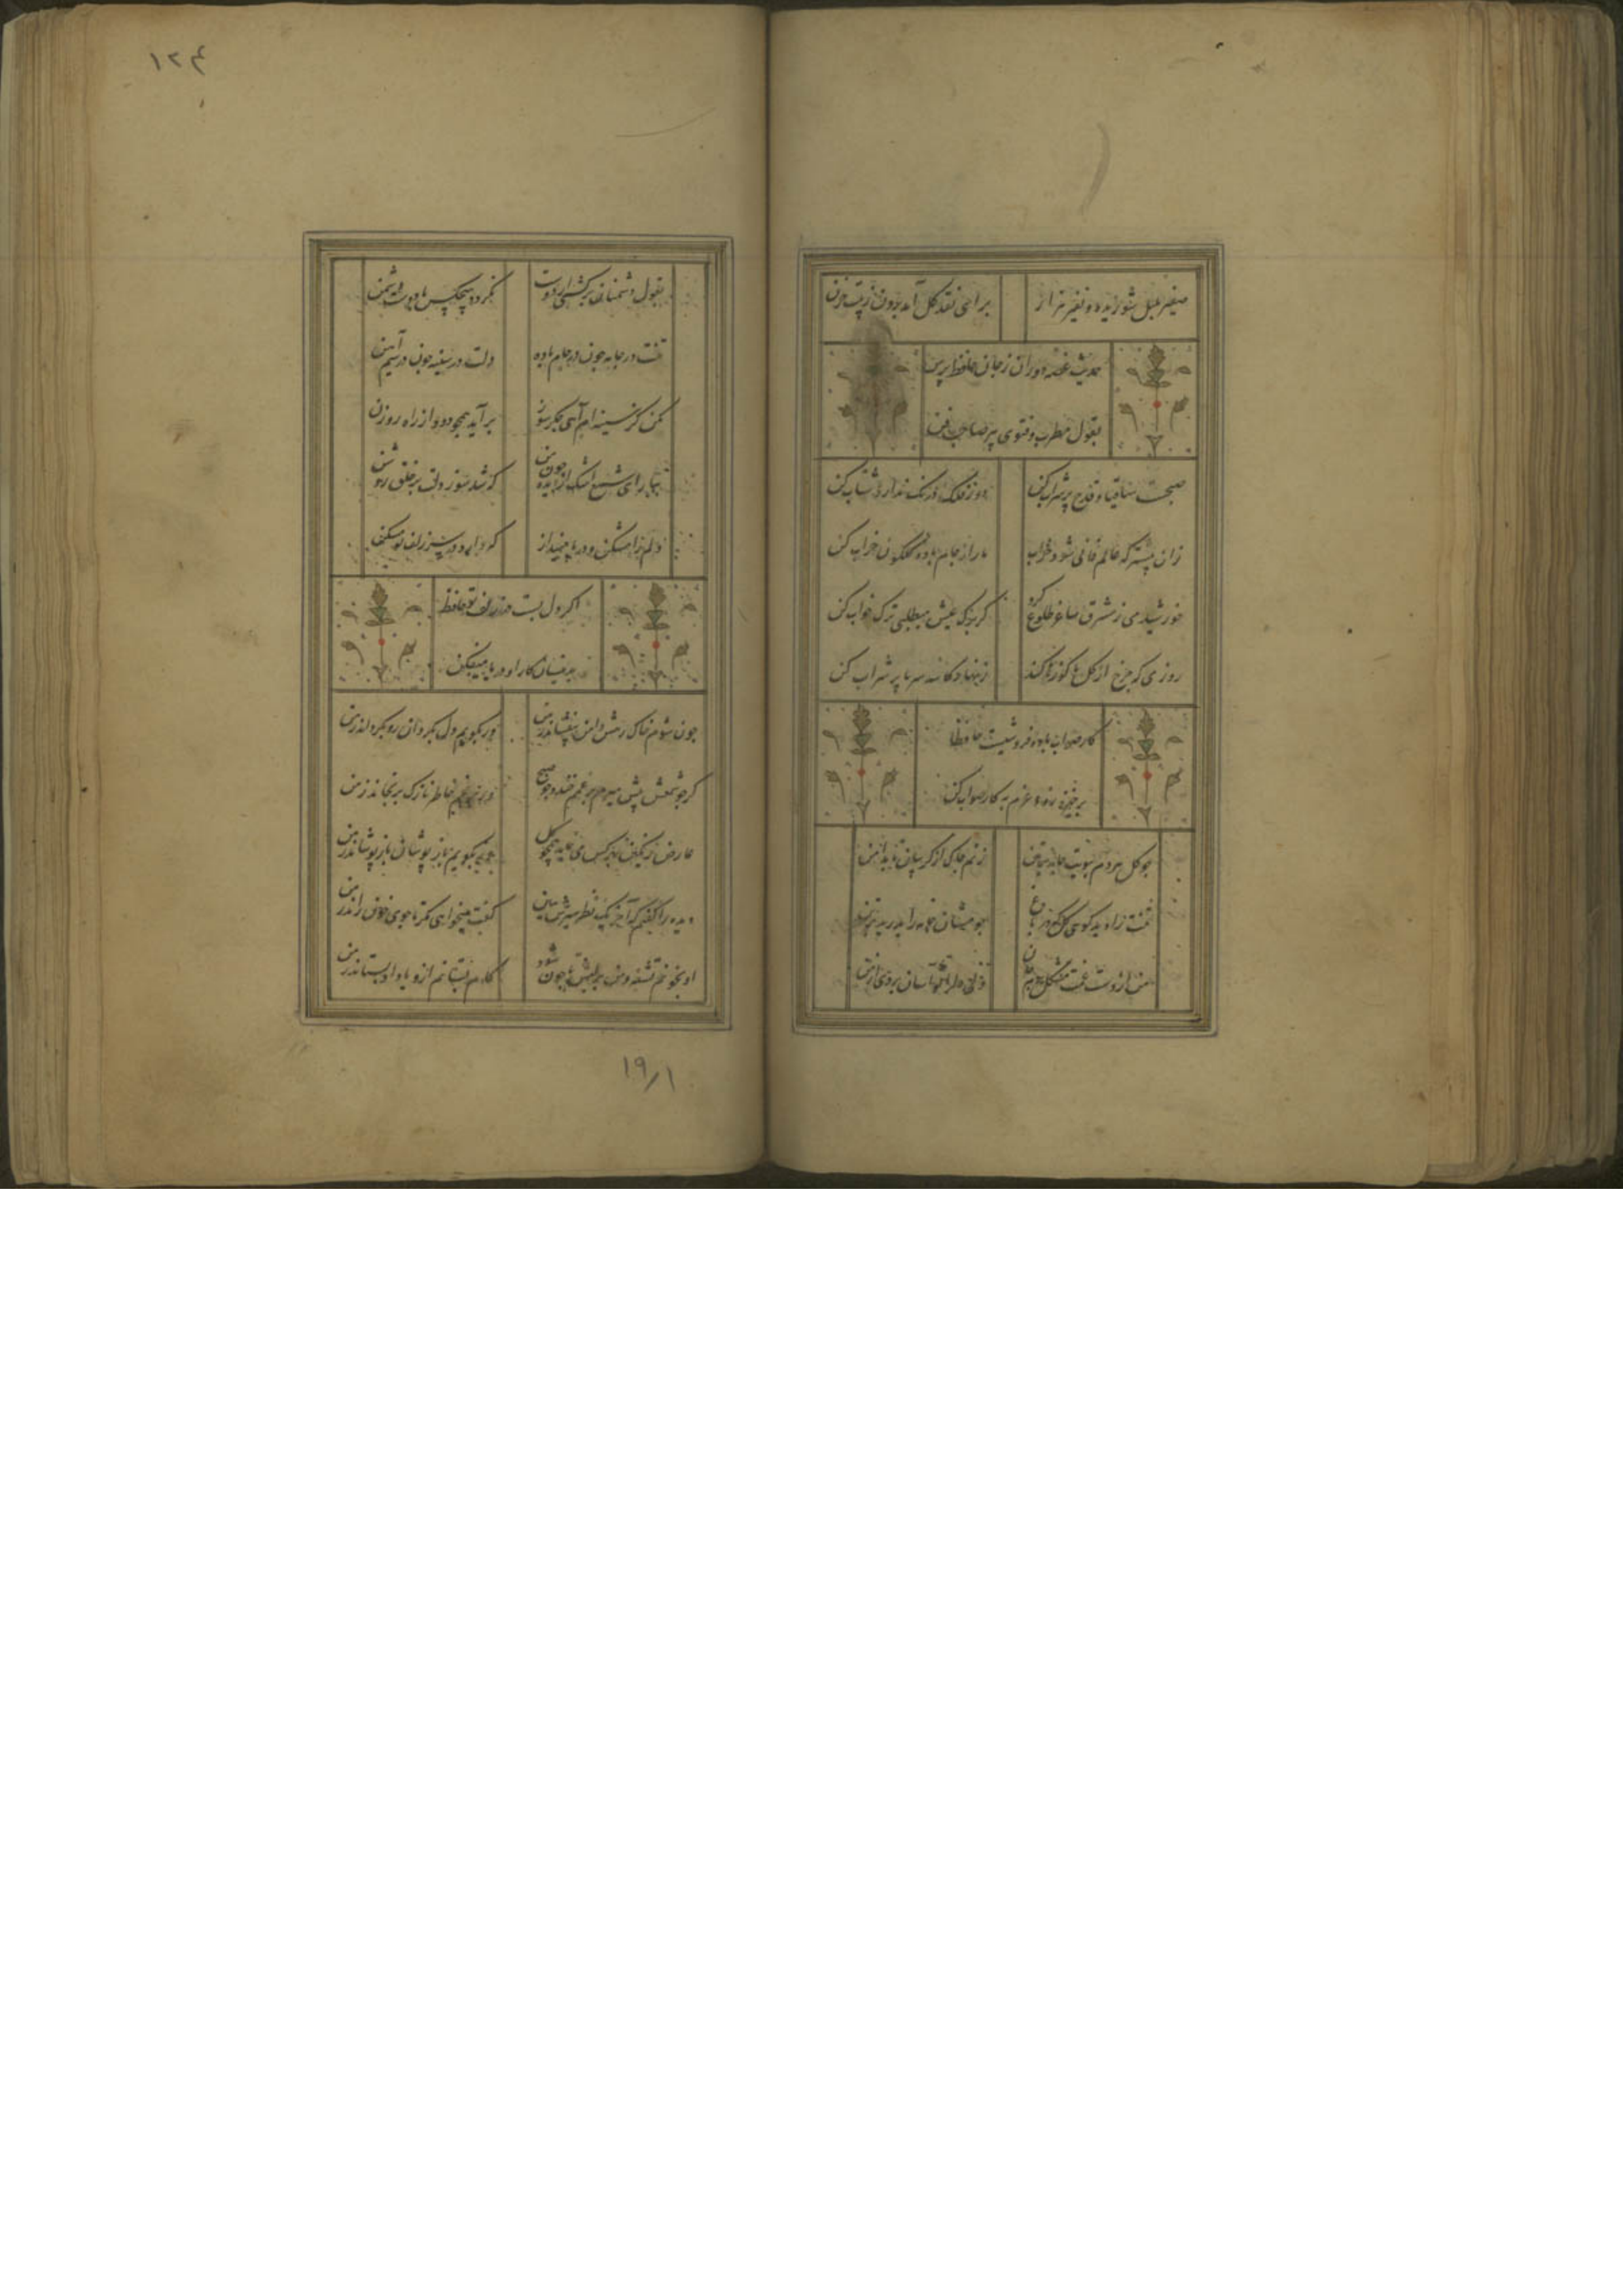 صفیر بلبل شوریده و نفیر هزار
برای نقد گل آمد برون ز بیت حزن
حدیث غصه دوران ز جان حافظ پرس
بقول مطرب و فتوی پیر صاحب فن
صبحست ساقیا قدح پر شراب کن
دور فلک درنک ندارد شتاب کن
زان پیشتر که عالم فانی شود خراب
ما را ز جام باده گلگون خراب کن
خورشید می ز مشرق ساغر طلوع کرد
کر برک عیش میطلبی ترک خواب کن
روزی که چرخ از گل ما کوزها کند
زنهار کاسه سر ما پر شراب کن
کار صواب باده فروشیست حافظا
برخیز و عزم به کار صواب کن
چو گل هر دم ببویت جامه بر تن
زنم چاک از کریبان تا بدامن
تنت را دید گل گوی که در باغ
چو مستان جامه را بدرید بر تن
من از دست غمت مشکل برم جان
ولی دل را تو آسان بردی از من
۱۲۴
بقول دشمنان برگشتی از دوست
نکردد هیچکس با دوست دشمن
تنت در جامه چون در جام باده
دلت در سینه چون در سیم آهن
مکن کز سینه ام آه جگر سوز
برآید همچو دود از راه روزن
ببار ای شمع اشک از دیده چون من
که شد سوز دلت بر خلق روشن
دلم را مشکن و در پا مینداز
که دارد در سر زلف تو مسکن
اکر دل بست در زلف تو حافظ
بدینسان کار او در پا میفکن
چون شوم خاک رهش دامن بیفشاند ز من
ور بکویم دل بکردان رو بکرداند ز من
کر چو شمعش پیش میرم بر غمم خندد چو صبح
ور برنجم خاطر نازک برنجاند ز من
عارض رنکین بهر کس می نماید همچو گل
ور بکویم باز پوشان باز پوشاند ز من
دیده را کفتم که آخر یک نظر سیرش ببین
کفت میخواهی مکر تا جوی خون راند ز من
او بخونم تشنه و من بر لبش تا چون شود
کام بستانم ازو یا داد بستاند ز من
۱۹/۱